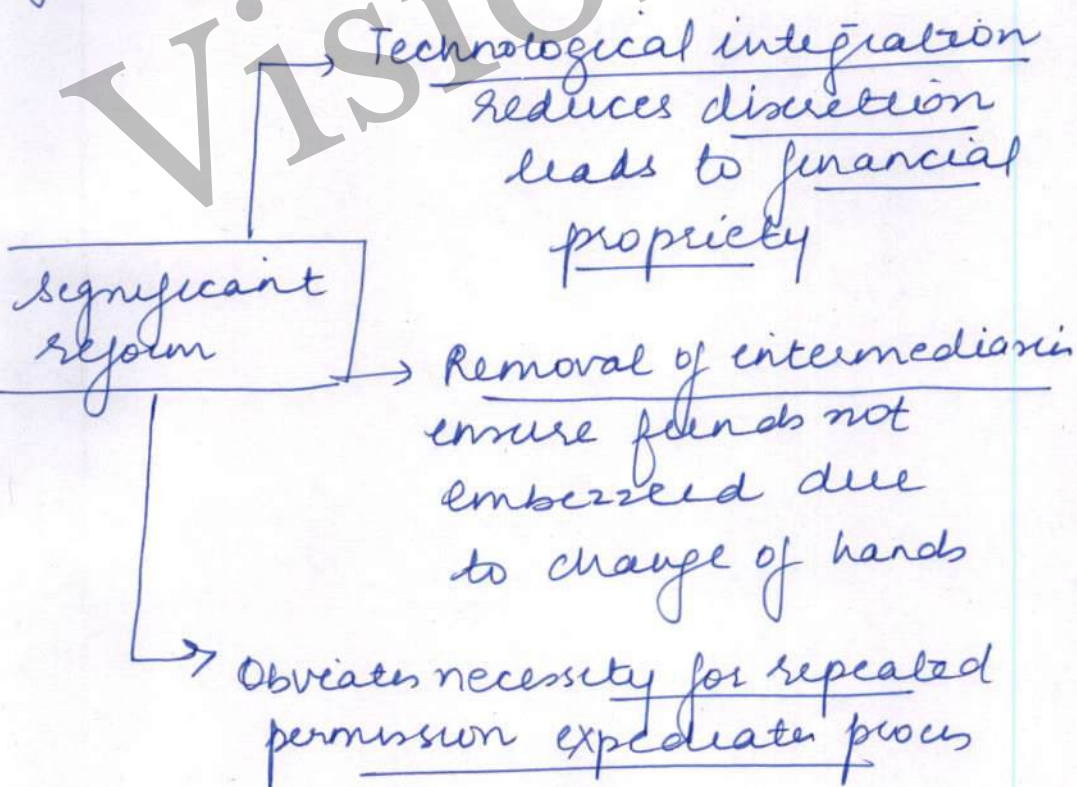 Visio
Technological integration
reduces discretion
leads to financial
propriety
significant
reform
Removal of intermediaries
ensure funds not
embezzled due
to change of hands
Obviates necessity for repeated
permission expediates process